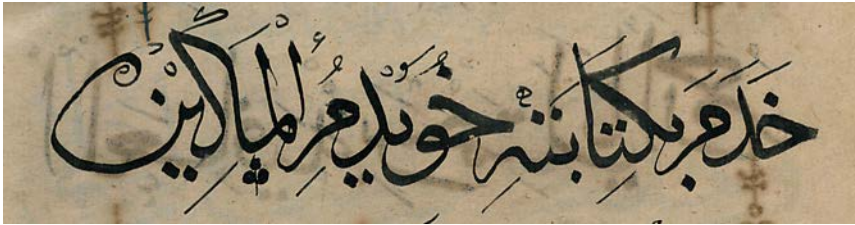 خَدَمَ بِكِتَابَتِهِ خُوَيْدِمُ الْمَسَاكِيْنِ